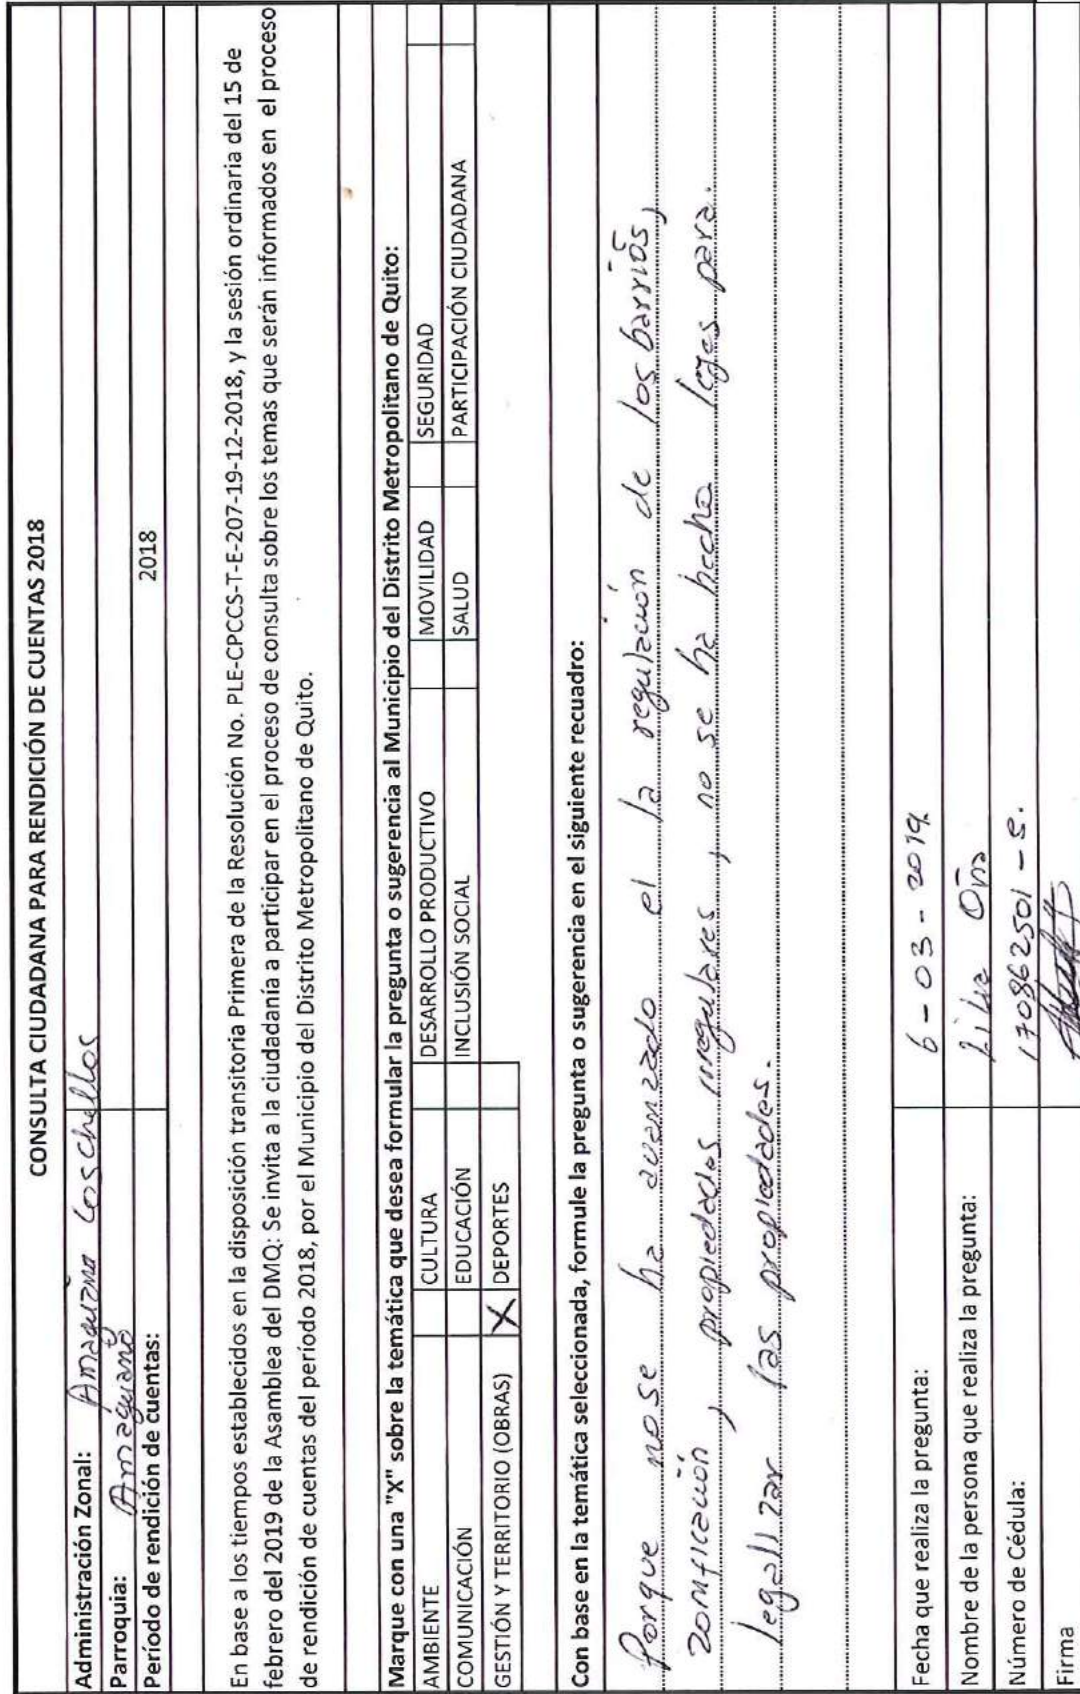 CONSULTA CIUDADANA PARA RENDICIÓN DE CUENTAS 2018
Administración Zonal: Amaguaña Los Chillos
Parroquia: Amaguaña
Período de rendición de cuentas: 2018
En base a los tiempos establecidos en la disposición transitoria Primera de la Resolución No. PLE-CPCCS-T-E-207-19-12-2018, y la sesión ordinaria del 15 de
febrero del 2019 de la Asamblea del DMQ: Se invita a la ciudadanía a participar en el proceso de consulta sobre los temas que serán informados en el proceso
de rendición de cuentas del período 2018, por el Municipio del Distrito Metropolitano de Quito.
Marque con una "X" sobre la temática que desea formular la pregunta o sugerencia al Municipio del Distrito Metropolitano de Quito:
AMBIENTE CULTURA DESARROLLO PRODUCTIVO MOVILIDAD SEGURIDAD
COMUNICACIÓN EDUCACIÓN INCLUSIÓN SOCIAL SALUD PARTICIPACIÓN CIUDADANA
GESTIÓN Y TERRITORIO (OBRAS) X DEPORTES
Con base en la temática seleccionada, formule la pregunta o sugerencia en el siguiente recuadro:
Porque no se ha avanzado el la regulación de los barrios,
zonificación, propiedades irregulares, no se ha hecho leyes para.
legalizar las propiedades.
Fecha que realiza la pregunta: 6-03-2019.
Nombre de la persona que realiza la pregunta: Lilia Oña
Número de Cédula: 170862501-5.
Firma